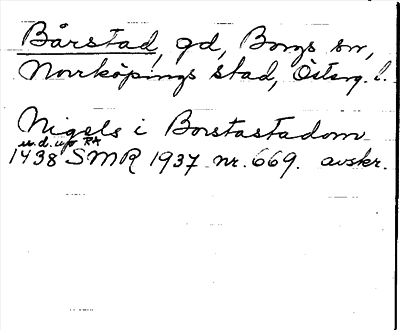 Bårstad, gd, Borgs sn,
Norrköpings stad, Österg. l.
Nigels i Borstastadom
u.d. upp RA
1438 SMR 1937 nr. 669. avskr.